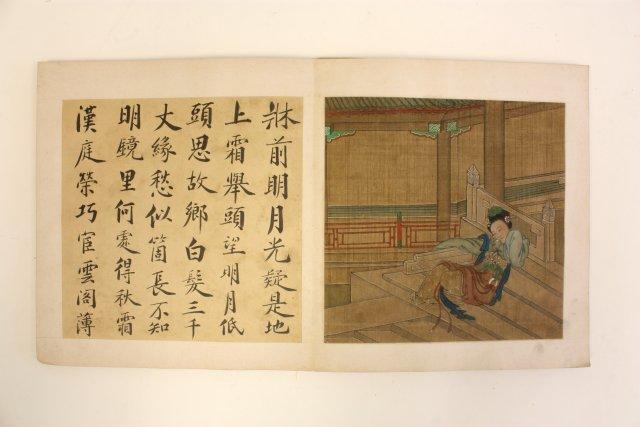 牀前明月光疑是地
上霜舉頭望明月低
頭思故鄉白髮三千
丈緣愁似箇長不知
明鏡里何處得秋霜
漢庭榮巧宦雲閣薄